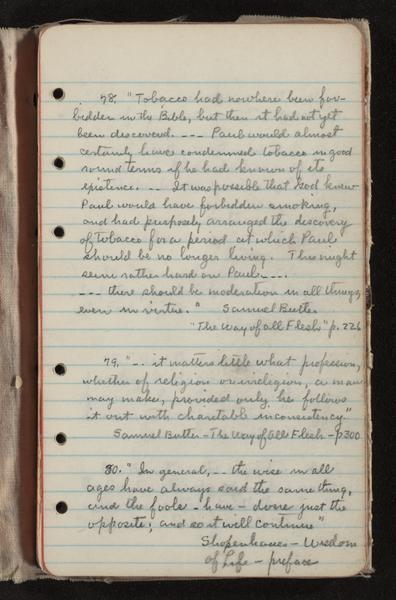 78. "Tobacco had nowhere been for-
bidden in the Bible, but then it had not yet
been discovered. --- Paul would almost
certainly have condemned tobacco in good
round terms if he had known of its
existence. -- It was possible that God knew
Paul would have forbidden smoking,
and had purposely arranged the discovery
of Tobacco for a period at which Paul
should be no longer living. This might
seem rather hard on Paul ---
--- there should be moderation in all things,
even in virtue." Samuel Butler
"The Way of all Flesh" p. 226
79. "-- it matters little what profession,
whether of religion or irreligion, a man
may make, provided only he follows
it out with charitable inconsistency"
Samuel Butler - The Way of All Flesh - p300
80. "In general, -- the wise in all
ages have always said the same thing,
and the fools - have - done just the
opposite; and so it will continue"
Shopenhauer - Wisdom
of Life - preface